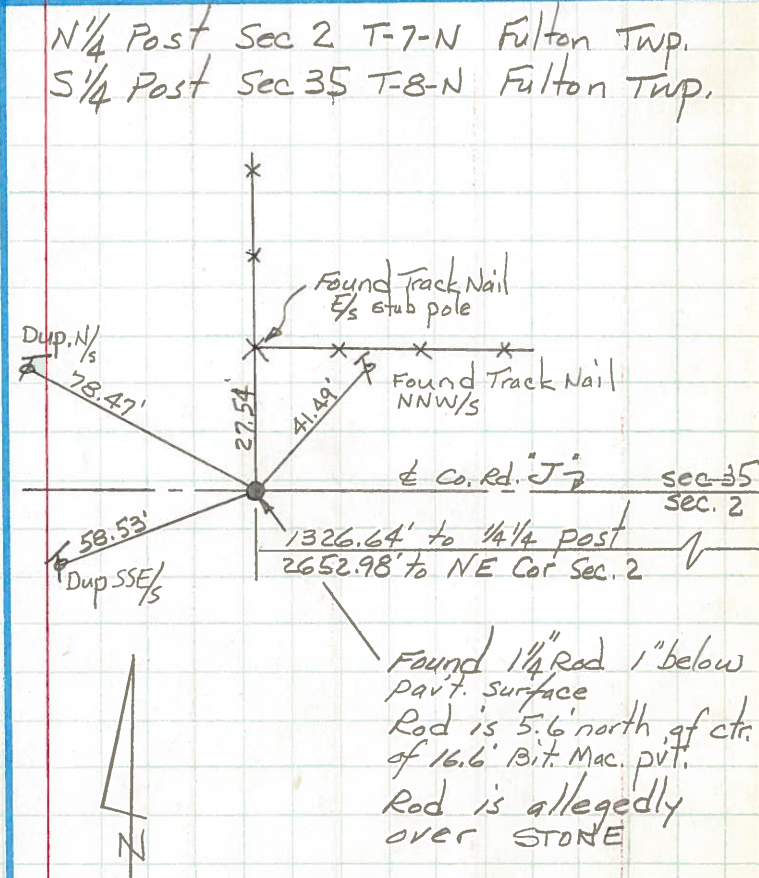 N 1/4 Post Sec 2 T-7-N Fulton Twp.
S 1/4 Post Sec 35 T-8-N Fulton Twp.
Found Track Nail
E/s stub pole
Dup. N/s
78.47'
27.54'
41.49'
Found Track Nail
NNW/s
℄ Co. Rd. "J"
sec 35
sec. 2
58.53'
Dup SSE/s
1326.64' to 1/4 1/4 post
2652.98' to NE Cor Sec. 2
Found 1 1/4" Rod 1" below
pav't. surface
Rod is 5.6' north of ctr.
of 16.6' Bit. Mac. pvt.
Rod is allegedly
over STONE
N